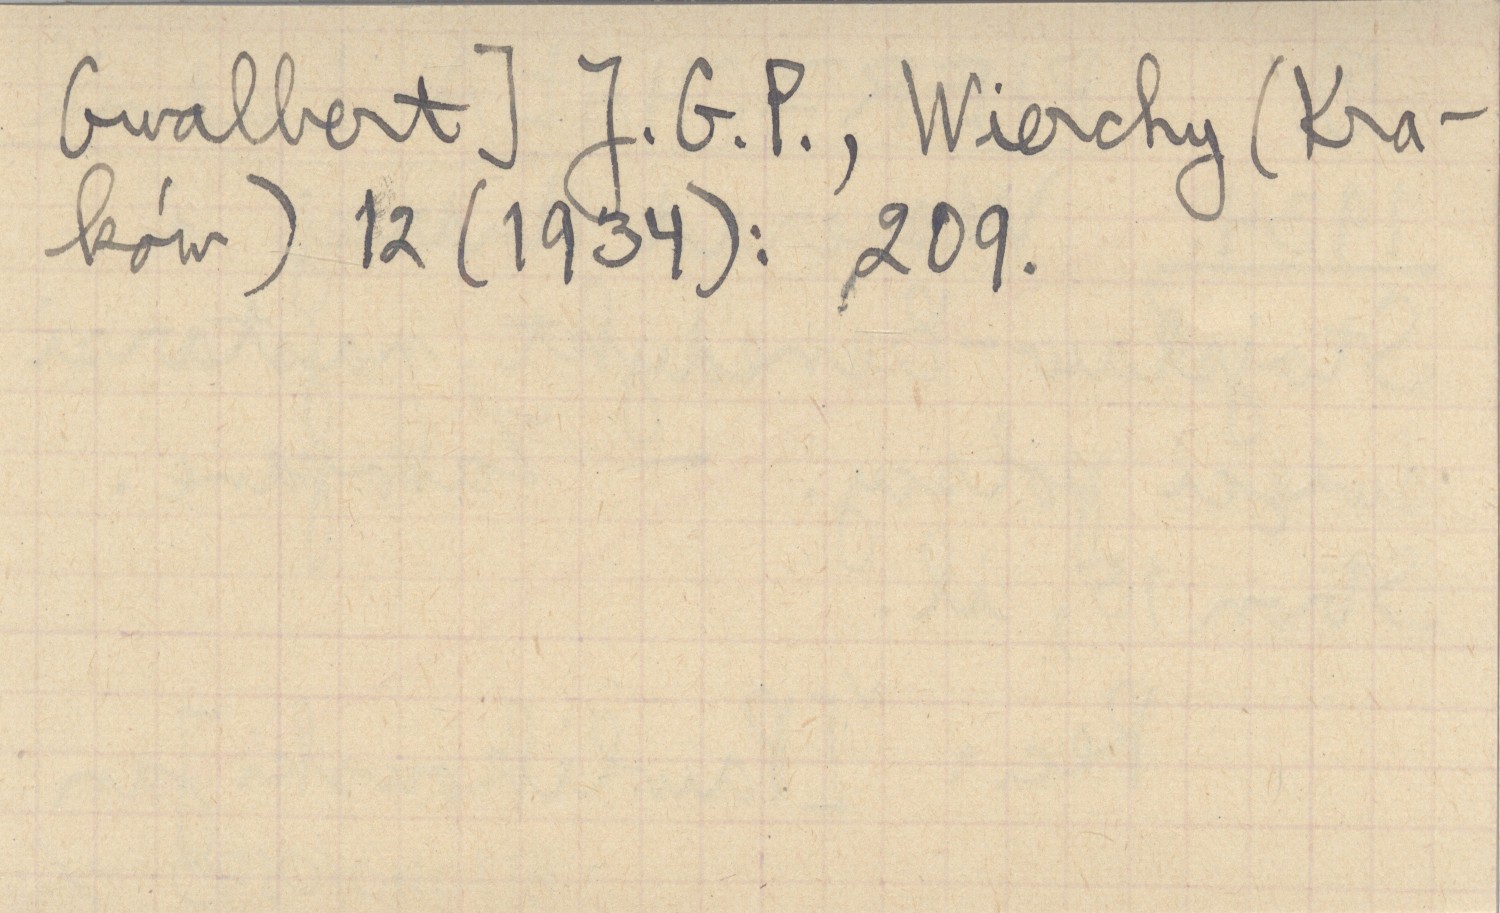 Gwalbert] J.G.P., Wierchy (Kra-
ków) 12 (1934): 209.